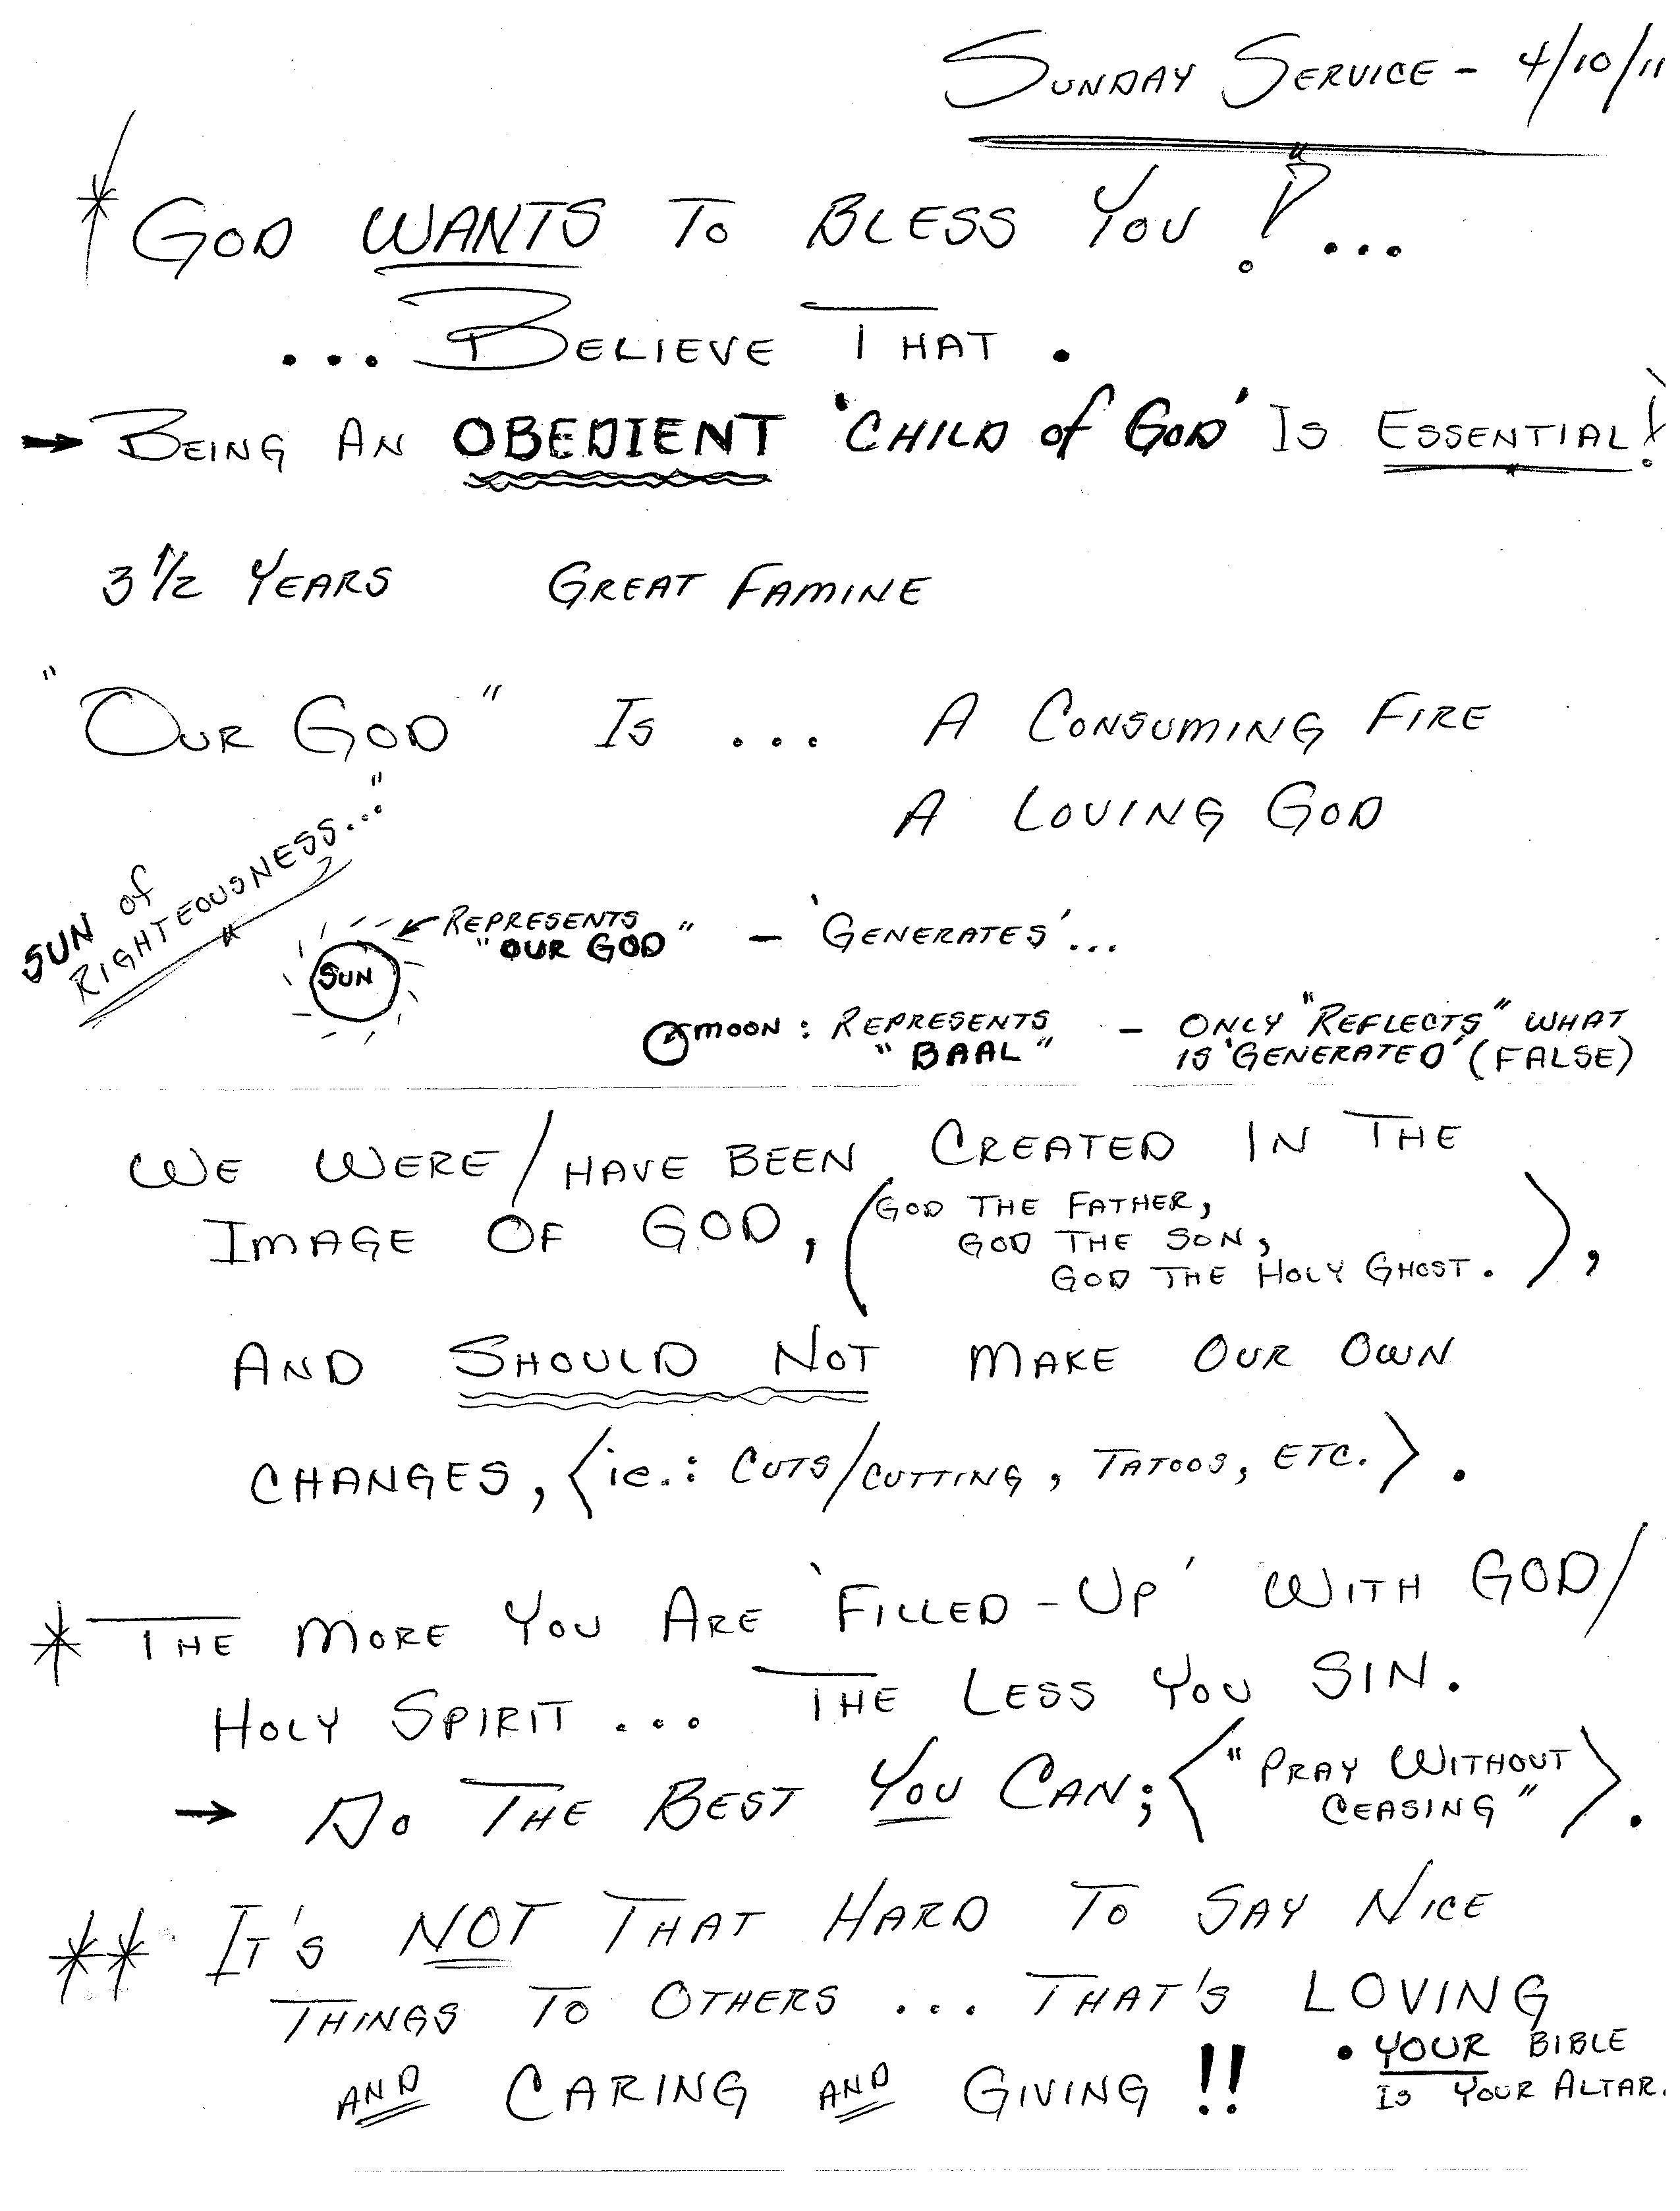 SUNDAY SERVICE - 4/10/11
* GOD WANTS TO BLESS YOU! ...
... BELIEVE THAT.
→ BEING AN OBEDIENT 'CHILD of GOD' IS ESSENTIAL!
3 1/2 YEARS GREAT FAMINE
"OUR GOD" IS ... A CONSUMING FIRE
A LOVING GOD
SUN of
RIGHTEOUSNESS..."
SUN
← REPRESENTS
"OUR GOD" - 'GENERATES'...
MOON: REPRESENTS
"BAAL"
- ONLY "REFLECTS" WHAT
IS 'GENERATED' (FALSE)
WE WERE/HAVE BEEN CREATED IN THE
IMAGE OF GOD, (GOD THE FATHER,
GOD THE SON,
GOD THE HOLY GHOST.),
AND SHOULD NOT MAKE OUR OWN
CHANGES, <ie.: CUTS/CUTTING, TATOOS, ETC.>.
* THE MORE YOU ARE 'FILLED-UP' WITH GOD/
HOLY SPIRIT ... THE LESS YOU SIN.
→ DO THE BEST YOU CAN; <"PRAY WITHOUT
CEASING">.
** IT'S NOT THAT HARD TO SAY NICE
THINGS TO OTHERS ... THAT'S LOVING
AND CARING AND GIVING!!
• YOUR BIBLE
IS YOUR ALTAR.